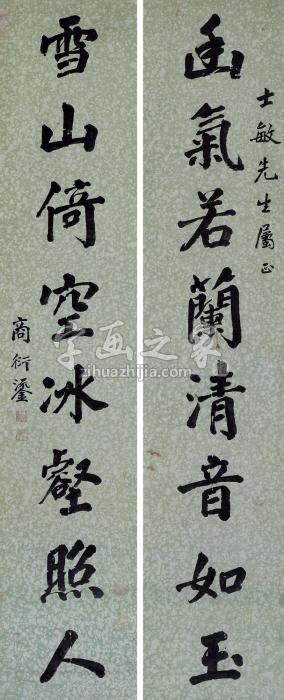 士敏先生屬正
幽氣若蘭清音如玉
雪山倚空冰壑照人
商衍鎏
字画之家
zihuazhijia.com